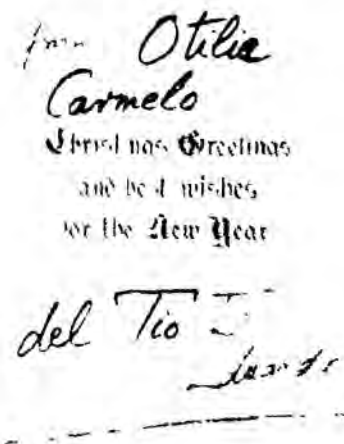 from Otilia
Carmelo
Christmas Greetings
and best wishes
for the New Year
del Tio